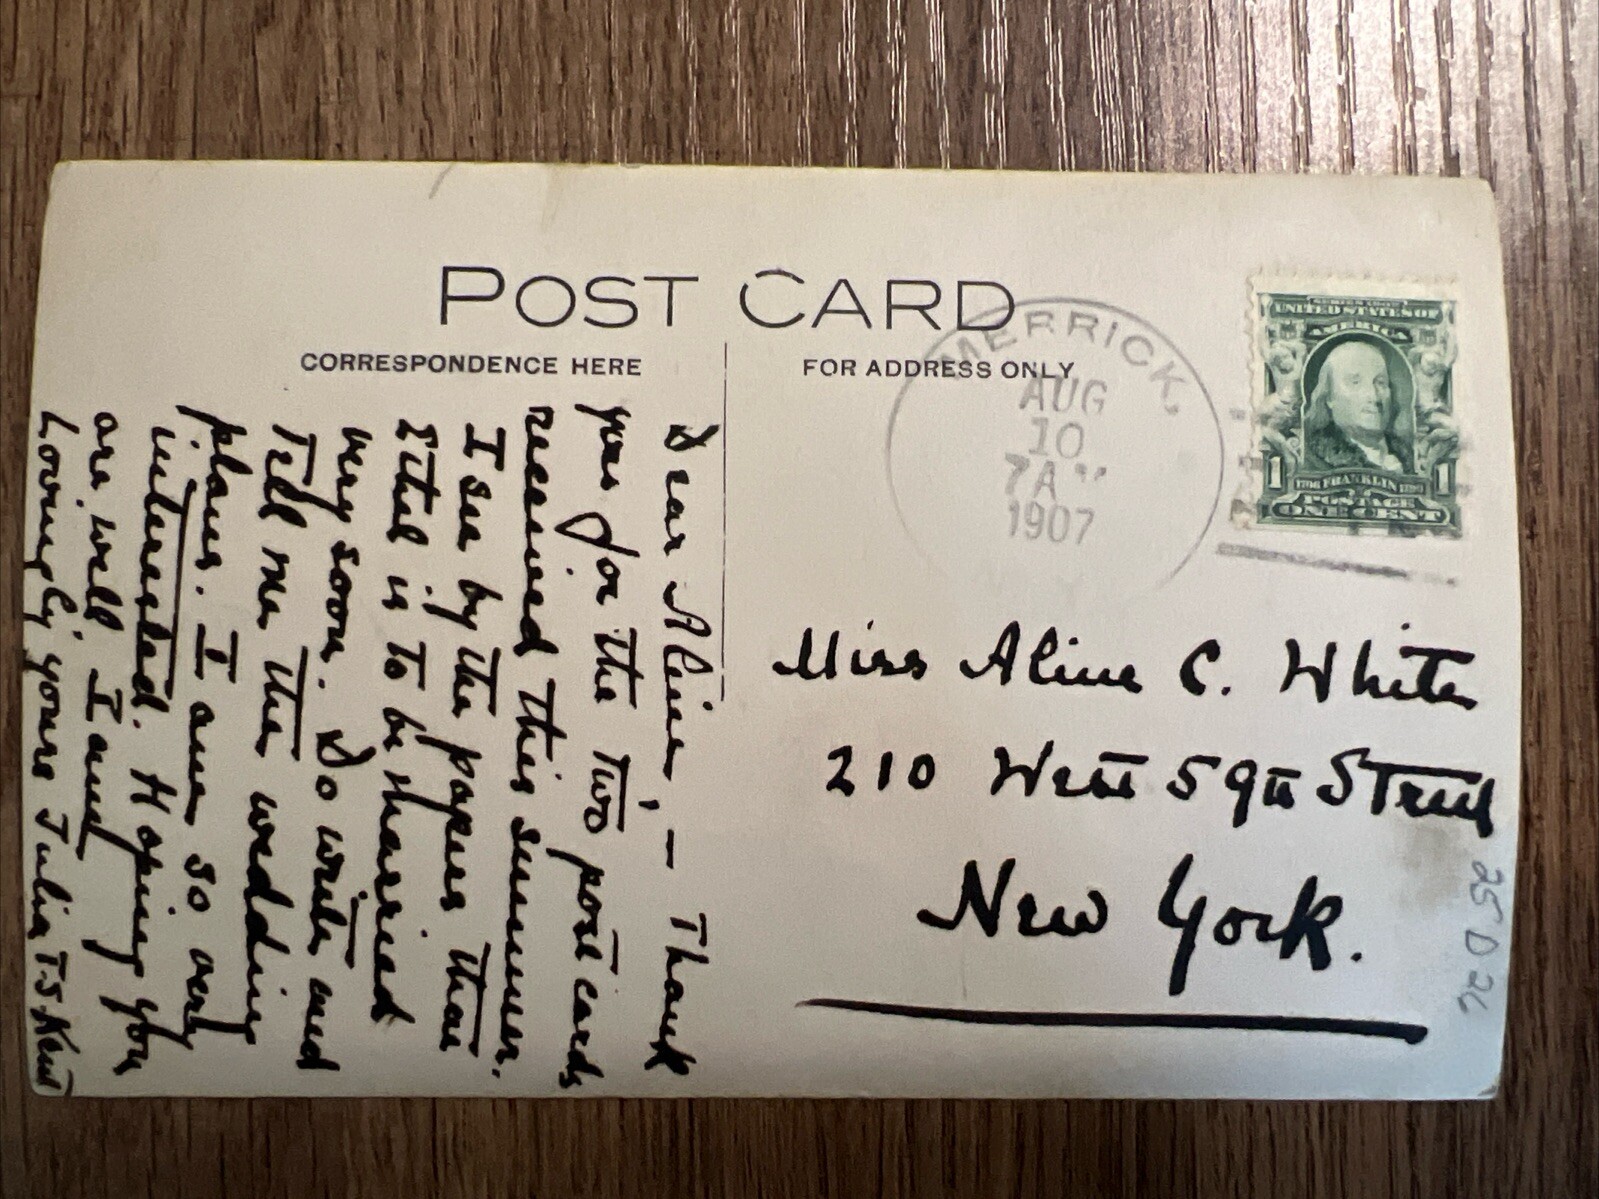 POST CARD
CORRESPONDENCE HERE
FOR ADDRESS ONLY
MERRICK,
AUG
10
7 A
1907
SERIES 1902
UNITED STATES OF
AMERICA
1 1706 FRANKLIN 1790 1
POSTAGE
ONE CENT
Dear Aline, — Thank
you for the two post cards
received this summer.
I see by the papers that
Ethel is to be married
very soon. Do write and
Tell me the wedding
plans. I am so very
interested. Hoping you
are well. I am
Lovingly yours Julia T.S. Kent
Miss Aline C. White
210 West 59th Street
New York.
25 D 26